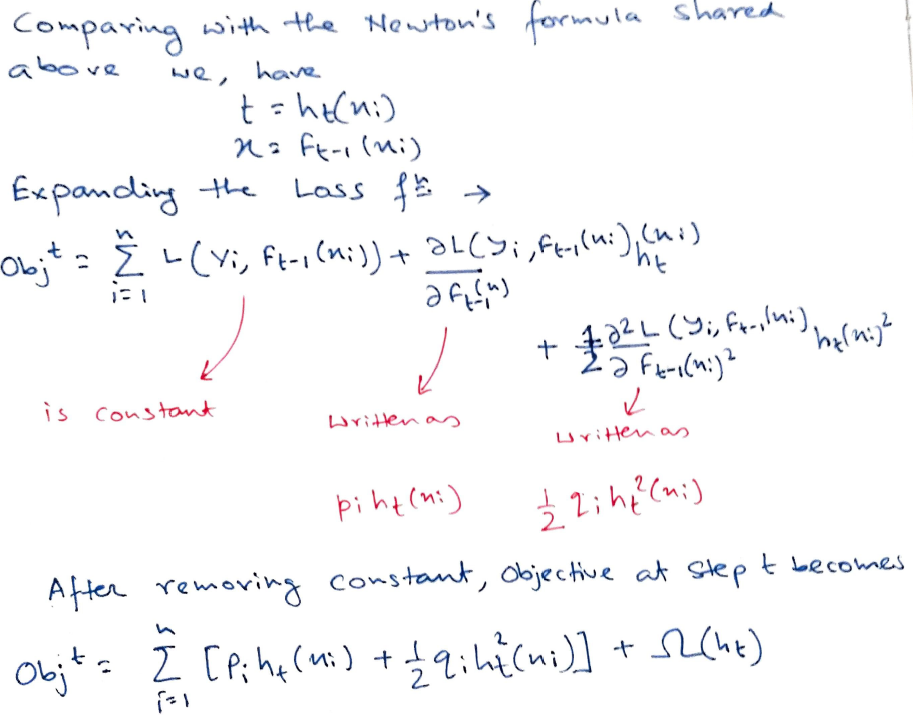 Comparing with the Newton's formula shared
above we, have
t = hₜ(xᵢ)
x = Fₜ₋₁(xᵢ)
Expanding the Loss fⁿ →
Objᵗ = ∑ᵢ₌₁ⁿ L(yᵢ, Fₜ₋₁(xᵢ)) + ∂L(yᵢ, Fₜ₋₁(xᵢ) / ∂Fₜ₋₁(x) hₜ(xᵢ)
+ 1/2 ∂²L(yᵢ, Fₜ₋₁(xᵢ) / ∂Fₜ₋₁(xᵢ)² hₜ(xᵢ)²
is constant
written as
written as
pᵢ hₜ(xᵢ)
1/2 qᵢ hₜ²(xᵢ)
After removing constant, Objective at step t becomes
Objᵗ = ∑ᵢ₌₁ⁿ [pᵢ hₜ(xᵢ) + 1/2 qᵢ hₜ²(xᵢ)] + Ω(hₜ)